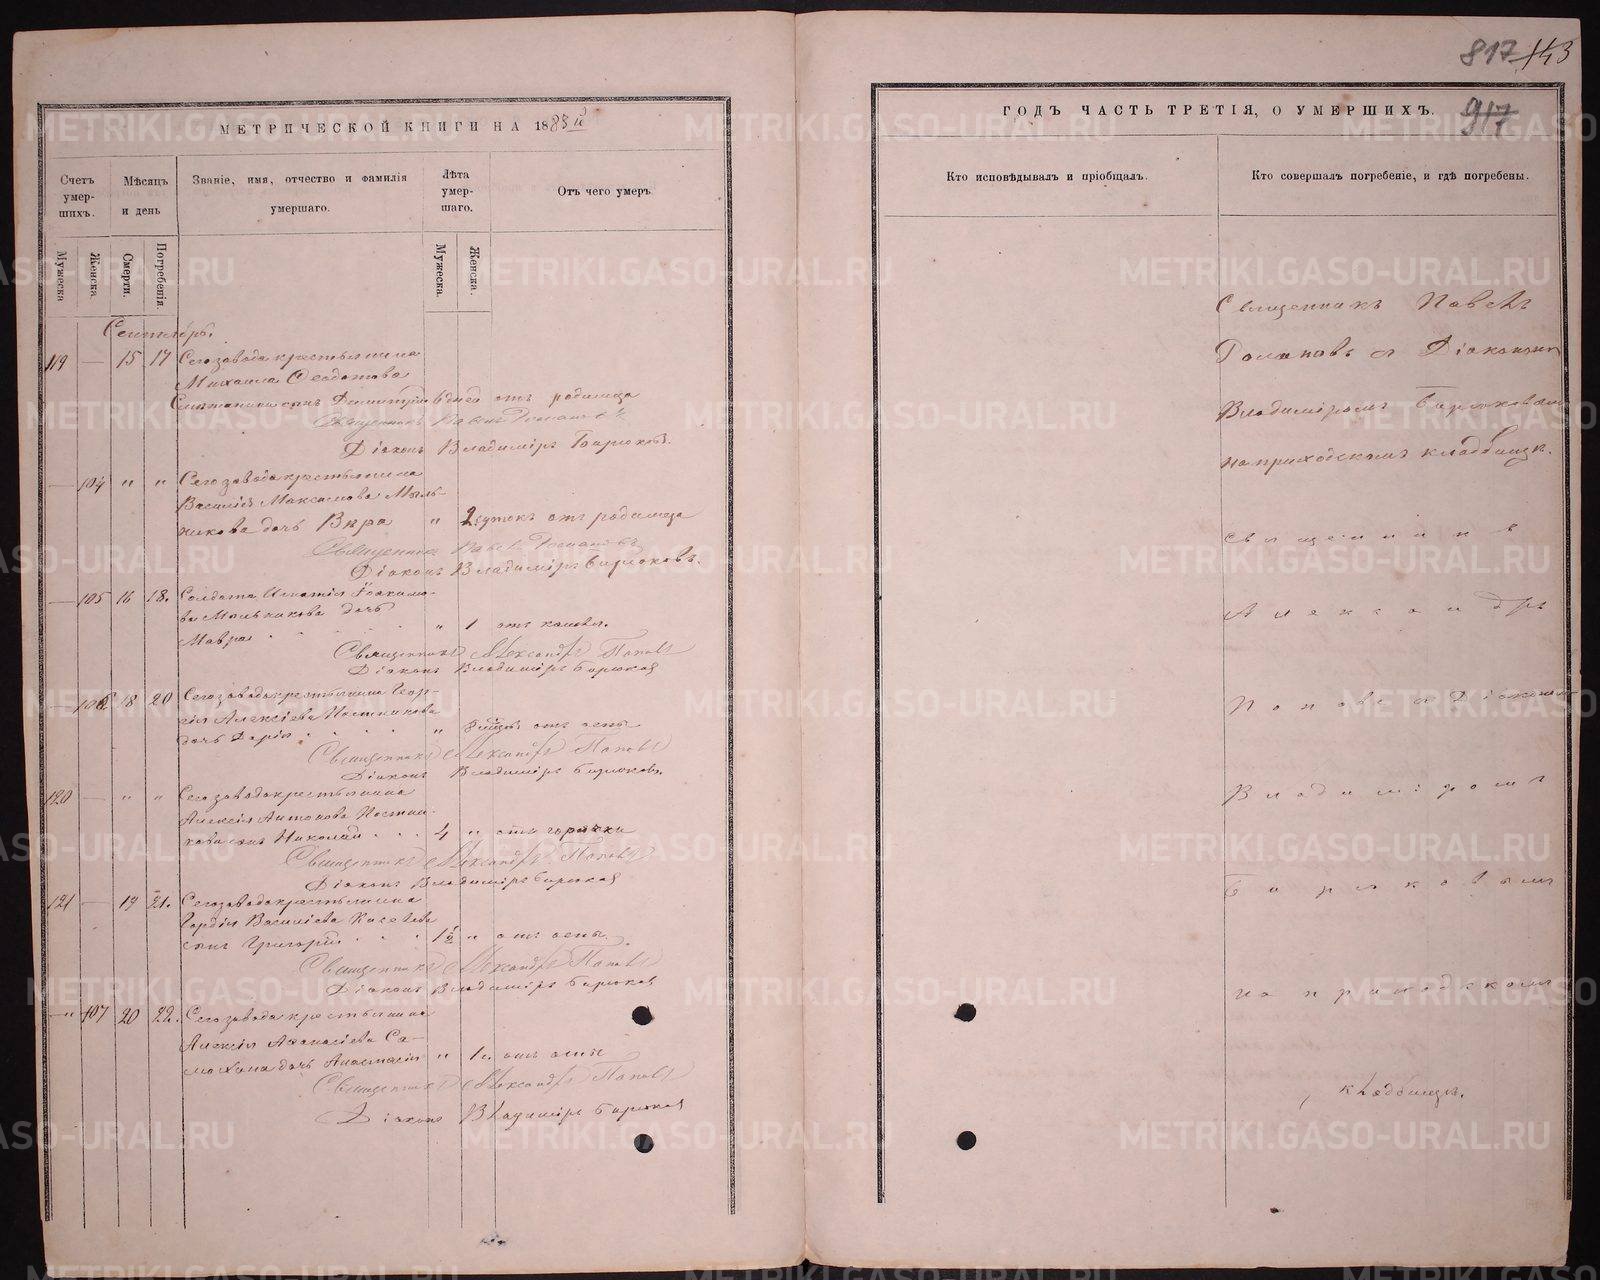 МЕТРИЧЕСКОЙ КНИГИ НА 1883й
Счетъ умер-шихъ.
Мѣсяцъ и день
Званіе, имя, отчество и фамилія умершаго.
Лѣта умер-шаго.
Отъ чего умеръ.
Мужеска
Женска.
Смерти.
Погребенія.
Мужеска.
Женска.
Сентябрь.
119 — 15 17 Сего завода крестьянина
Михаила Ѳеодотова
сынъ Димитрій 6 дней отъ родимца
Священникъ Павелъ
Діаконъ Владиміръ Бирюковъ.
— 104 " " Сего завода крестьянина
Василія Максимова Мыль-
никова дочь Вѣра " 2 сутокъ отъ родимца
Священникъ Павелъ
Діаконъ Владиміръ Бирюковъ.
— 105 16 18. Солдата Игнатія Іоакимо-
ва Мыльникова дочь
Мавра " 1 отъ
Священникъ Александръ Поповъ
Діаконъ Владиміръ Бирюковъ
— 106 18 20 Сего завода крестьянина Геор-
гія Алексіева Постникова
дочь Дарія " отъ оспы
Священникъ Александръ Поповъ
Діаконъ Владиміръ Бирюковъ.
120 — " " Сего завода крестьянина
Алексія Антонова Постни-
кова сынъ Николай 4 " отъ горячки
Священникъ Александръ Поповъ
Діаконъ Владиміръ Бирюковъ
121 — 19 21. Сего завода крестьянина
Гордія Василіева Киселева
сынъ Григорій 1½ " отъ оспы.
Священникъ Александръ Поповъ
Діаконъ Владиміръ Бирюковъ
— " 107 20 22. Сего завода крестьянина
Алексія Аѳанасіева Са-
мохина дочь Анастасія " 1 г. отъ оспы
Священникъ Александръ Поповъ
Діаконъ Владиміръ Бирюковъ
817 143
917
ГОДЪ ЧАСТЬ ТРЕТІЯ, О УМЕРШИХЪ.
Кто исповѣдывалъ и пріобщалъ.
Кто совершалъ погребеніе, и гдѣ погребены.
Священникъ Павелъ
съ Діакономъ
Владиміромъ Бирюковымъ
на приходскомъ кладбищѣ.
Священникъ
Александръ
Поповъ съ Діакономъ
Владиміромъ
Бирюковымъ
на приходскомъ
кладбищѣ.
METRIKI.GASO-URAL.RU